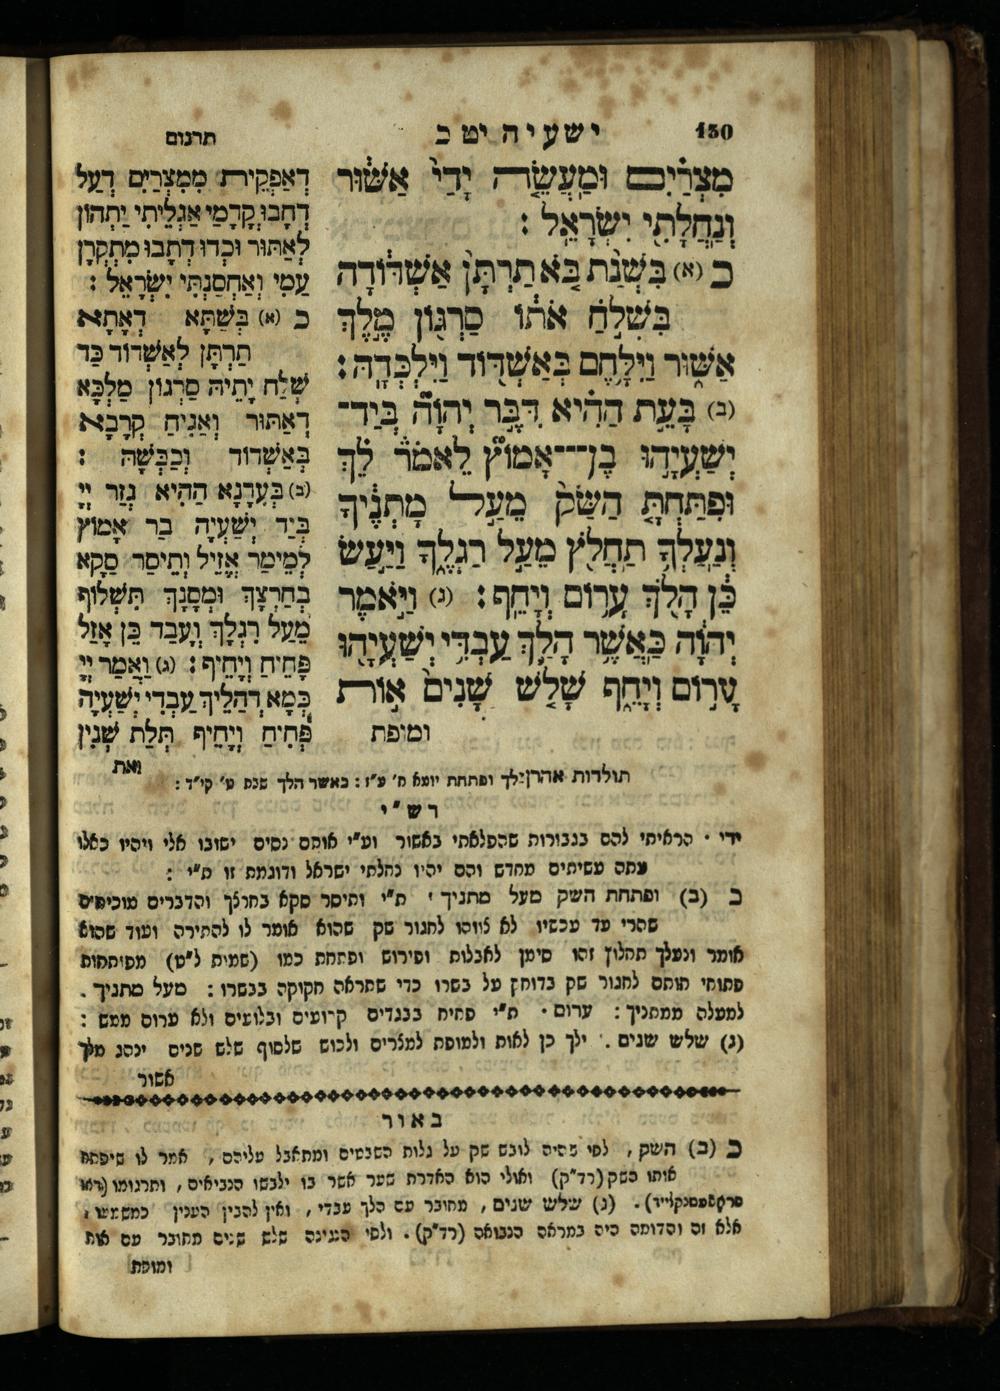 130
ישעיה יט כ
תרגום
מִצְרַ֗יִם וּמַעֲשֵׂ֤ה יָדַי֙ אַשּׁ֔וּר
וְנַחֲלָתִ֖י יִשְׂרָאֵֽל :
כ (א) בִּשְׁנַ֨ת בֹּ֤א תַרְתָּן֙ אַשְׁדּ֔וֹדָה
בִּשְׁלֹ֣חַ אֹת֔וֹ סַרְג֖וֹן מֶ֣לֶךְ
אַשּׁ֑וּר וַיִּלָּ֥חֶם בְּאַשְׁדּ֖וֹד וַֽיִּלְכְּדָֽהּ :
(ב) בָּעֵ֣ת הַהִ֗יא דִּבֶּ֣ר יְהוָה֮ בְּיַד־
יְשַׁעְיָ֣הוּ בֶן־־אָמוֹץ֮ לֵאמֹר֒ לֵ֗ךְ
וּפִתַּחְתָּ֤ הַשַּׂק֙ מֵעַ֣ל מָתְנֶ֔יךָ
וְנַעַלְךָ֥ תַחֲלֹ֖ץ מֵעַ֣ל רַגְלֶ֑ךָ וַיַּ֣עַשׂ
כֵּ֔ן הָלֹ֖ךְ עָר֥וֹם וְיָחֵֽף : (ג) וַיֹּ֣אמֶר
יְהוָ֔ה כַּאֲשֶׁ֥ר הָלַ֛ךְ עַבְדִּ֥י יְשַׁעְיָ֖הוּ
עָר֣וֹם וְיָחֵ֑ף שָׁלֹ֤שׁ שָׁנִים֙ א֣וֹת
ומופת
דְאַפֵּקִית מִמִצְרַיִם דְעַל
דְחָבוּ קָדָמַי אַגְלֵיתִי יַתְהוֹן
לְאַתּוּר וּכְדוּ דְתָבוּ מִתְקְרָן
עַמִי וְאַחְסַנְתִּי יִשְׂרָאֵל :
כ (א) בְּשַׁתָּא דְאָתָא
תַרְתָּן לְאַשְׁדוֹד כַּד
שְׁלַח יָתֵיהּ סַרְגוֹן מַלְכָּא
דְאַתּוּר וְאַגִיחַ קְרָבָא
בְּאַשְׁדוֹד וְכַבְשָׁהּ :
(ב) בְּעִדָנָא הַהִיא גְזַר יְיָ
בְּיַד יְשַׁעְיָה בַר אָמוֹץ
לְמֵימַר אֱזֵיל וְתֵיסַר סַקָא
בְחַרְצָךְ וּמְסָנָךְ תִּשְׁלוֹף
מֵעַל רִגְלָךְ וַעֲבַד כֵּן אָזַל
פָּחִיחַ וְיָחֵיף : (ג) וַאֲמַר יְיָ
כְּמָא דְהַלִיךְ עַבְדִי יְשַׁעְיָה
פָּחִיחַ וְיָחֵיף תְּלַת שְׁנִין
ואת
תולדות אהרן לך ופתחת יומא ח' ע"ז : כאשר הלך שבת ע' קי"ד :
רש"י
ידי . הראיתי להם בגבורות שהפלאתי באשור וע"י אותם נסים ישובו אלי ויהיו כאלו
עתה עשיתים מחדש והם יהיו נחלתי ישראל ודוגמת זו ת"י :
כ (ב) ופתחת השק מעל מתניך . ת"י ותיסר סקא בחרצך והדברים מוכיחים
שהרי עד עכשיו לא ציוהו לחגור שק שהוא אומר לו להתירה ועוד שהוא
אומר ונעלך תחלוץ זהו סימן לאבלות ופירוש ופתחת כמו (שמית ל"ט) מפותחות
פתוחי חותם לחגור שק בדוחק על בשרו כדי שתראה חקוקה בבשרו : מעל מתניך .
למעלה ממתניך : ערום . ת"י פחיח בבגדים קרועים ובלועים ולא ערום ממש :
(ג) שלש שנים . ילך כן לאות ולמופת למצרים ולכוש שלסוף שלש שנים ינהג מלך
אשור
באור
כ (ב) השק , לפי שהיה לובש שק על גלות השבטים ומתאבל עליהם , אמר לו שיפתח
אותו השק (רד"ק) ואולי הוא האדרת שער אשר בו ילבשו הנביאים , ותרגומו
(ג) שלש שנים , מחובר עם הלך עבדי , ואין להבין הענין כמשמעו ,
אלא זה והדומה היה במראה הנבואה (רד"ק) . ולפי הנגינה שלש שנים מחובר עם אות
ומופת